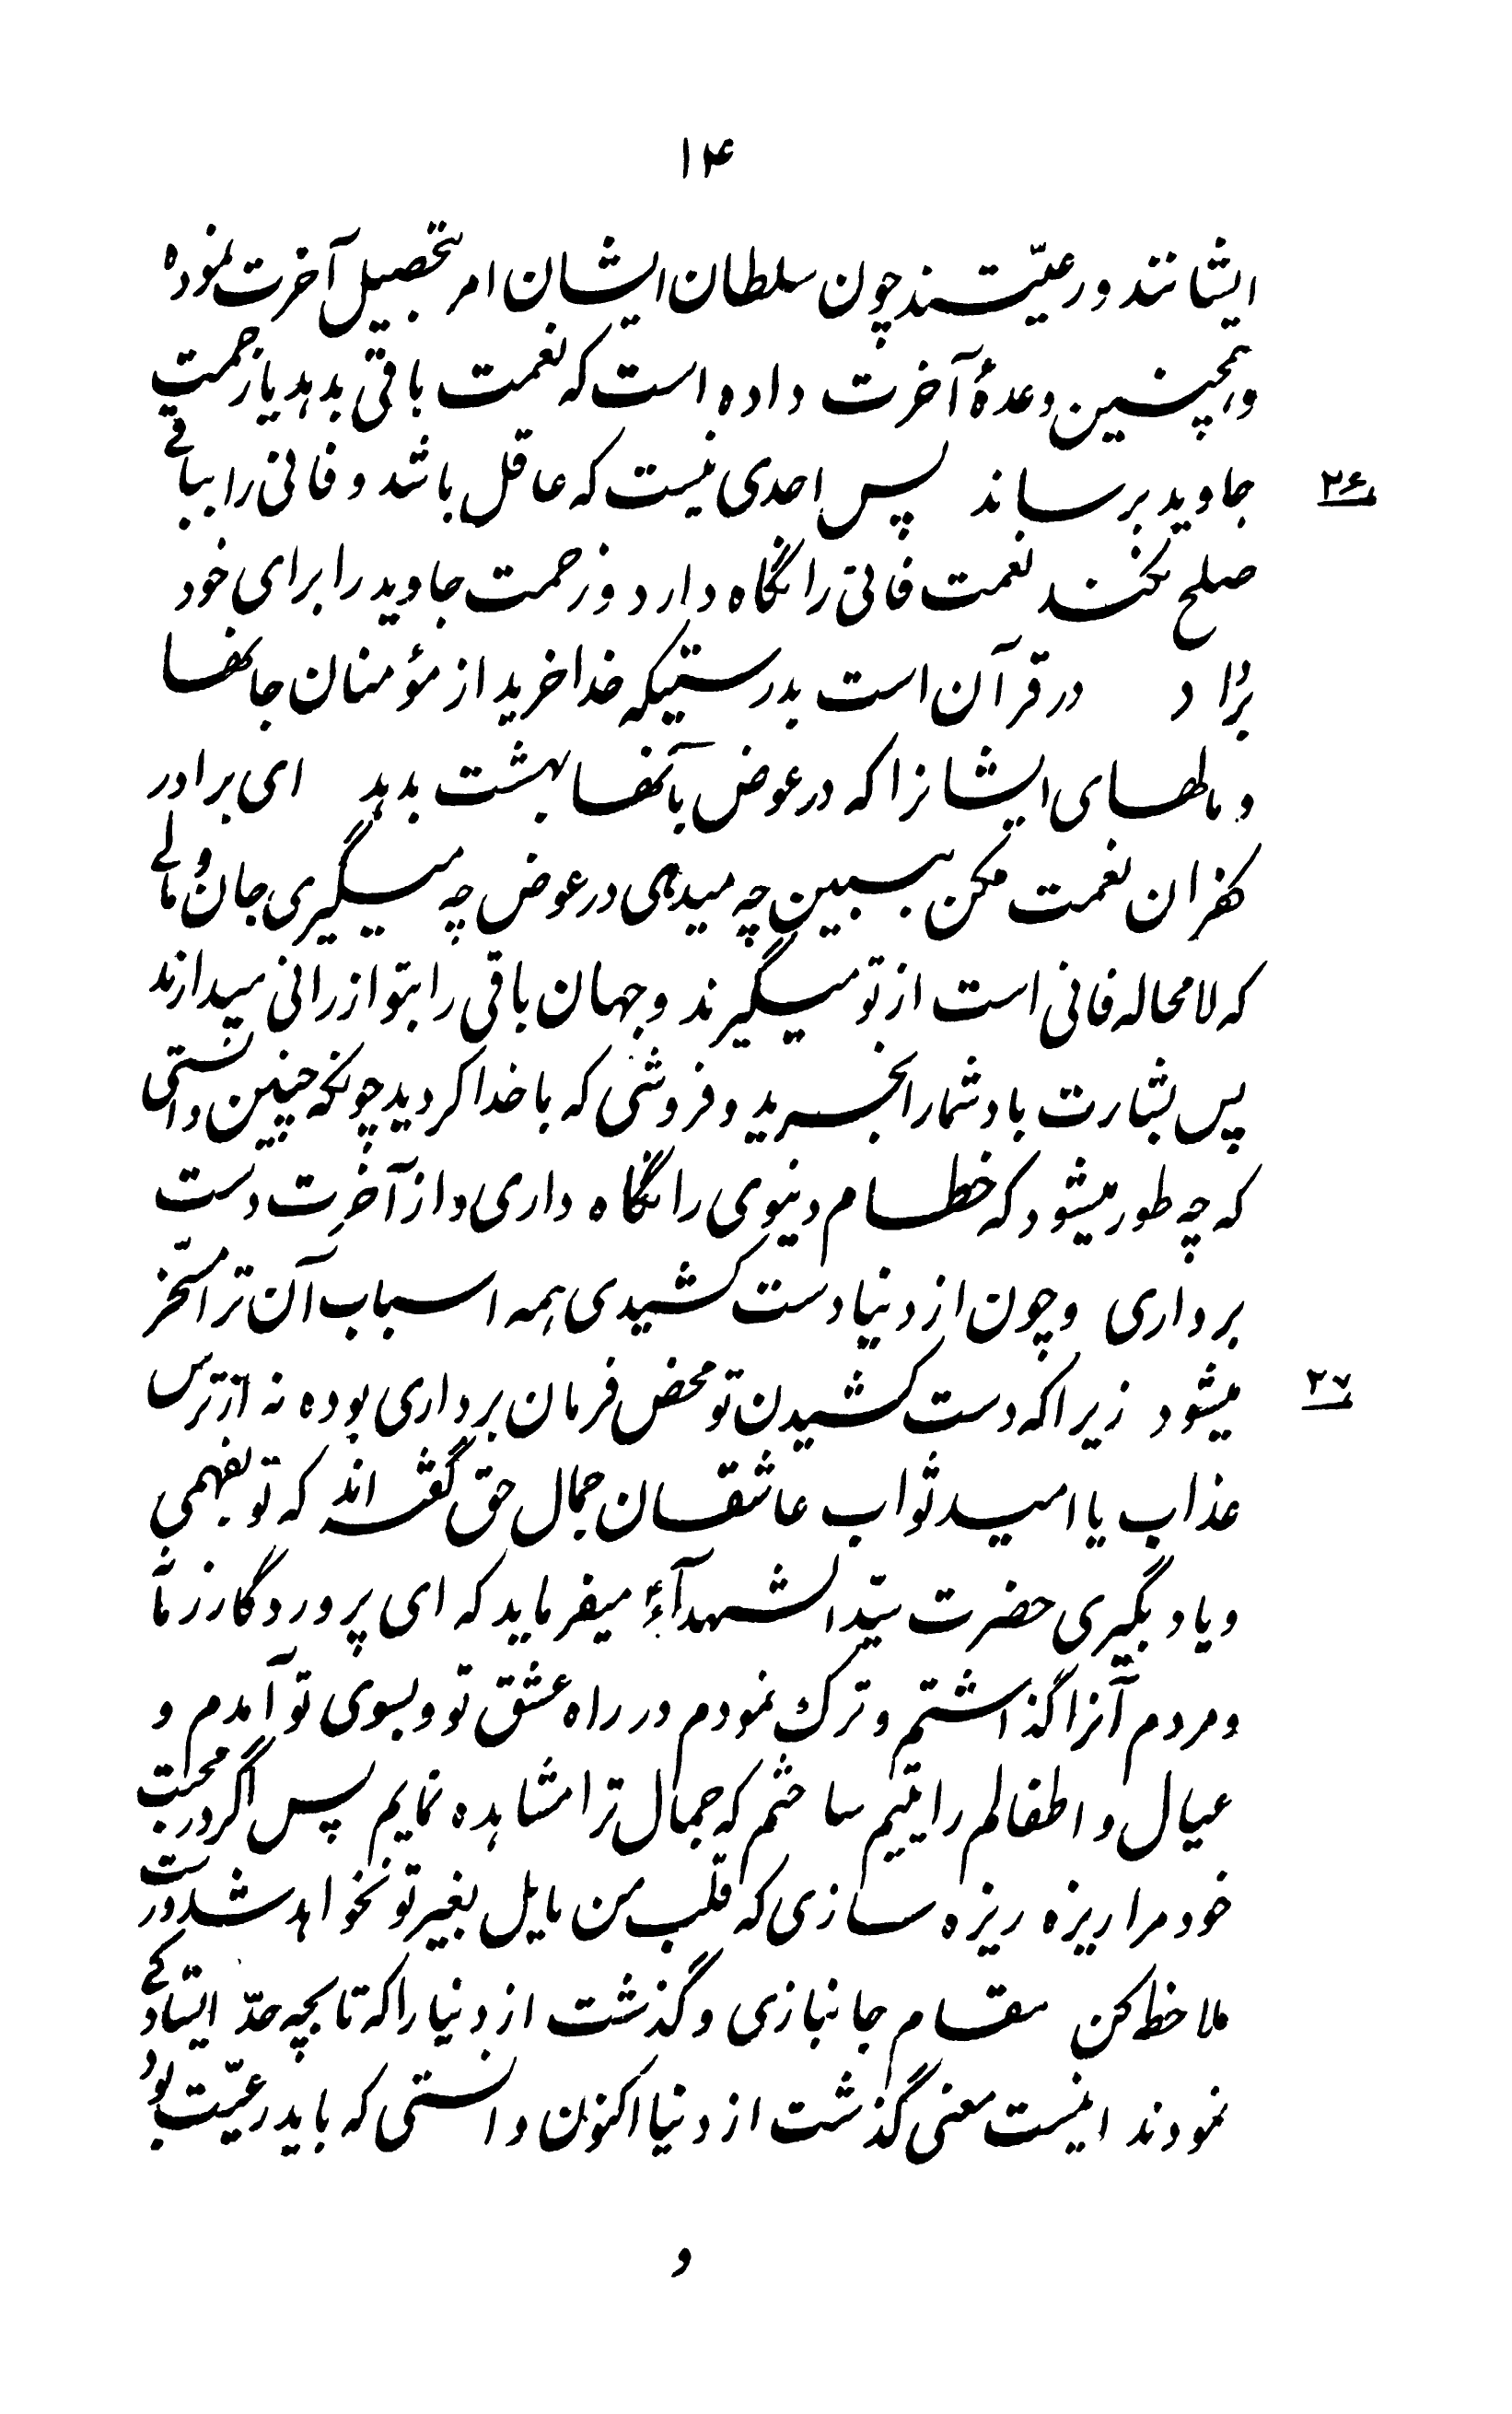 ۱۴
ایشانند و رعیّتند چون سلطان ایشان امر بتحصیل آخرت نموده
و همچنین وعدهٔ آخرت داده است که نعمت باقی بدهد یا زحمت
جاوید برساند پس احدی نیست که عاقل باشد و فانی را بباقی
۲۶
صلح نکند نعمت فانی را نگاه دارد و زحمت جاوید را برای خود
بزاد در قرآن است بدرستیکه خدا خرید از مؤمنان جانها
و مالهای ایشانرا که در عوض بآنها بهشت بدهد ای برادر
کفران نعمت مکن ببین چه میدهی در عوض چه میگیری جان و مالی
که لامحاله فانی است از تو میگیرند و جهان باقی را بتو ارزانی میدارند
پس بشارت باد شما را بخرید و فروشی که با خدا کردید چونکه چنین دانستی
که چه طور میشود که حطام دنیوی را نگاه داری و از آخرت دست
برداری و چون از دنیا دست کشیدی همه اسباب آن ترا مسخّر
میشود زیرا که دست کشیدن تو محض فرمان برداری بوده نه از ترس
۲۷
عذاب یا امید ثواب عاشقان جمال حق گفته اند که تو بفهمی
و یاد بگیری حضرت سیّد الشهدآء میفرماید که ای پروردگار زمان
و مردم آنرا گذاشتم و ترک نمودم در راه عشق تو و بسوی تو آمدم و
عیال و اطفالم را یتیم ساختم که جمال ترا مشاهده نمایم پس اگر در محبت
خود مرا ریزه ریزه سازی که قلب من مایل بغیر تو نخواهد شد درست
ملاحظه کن مقام جانبازی و گذشت از دنیا را که تا بچه حدّ ایستادگی
نمودند اینست معنی گذشت از دنیا اکنون دانستی که باید رعیّت بود
و